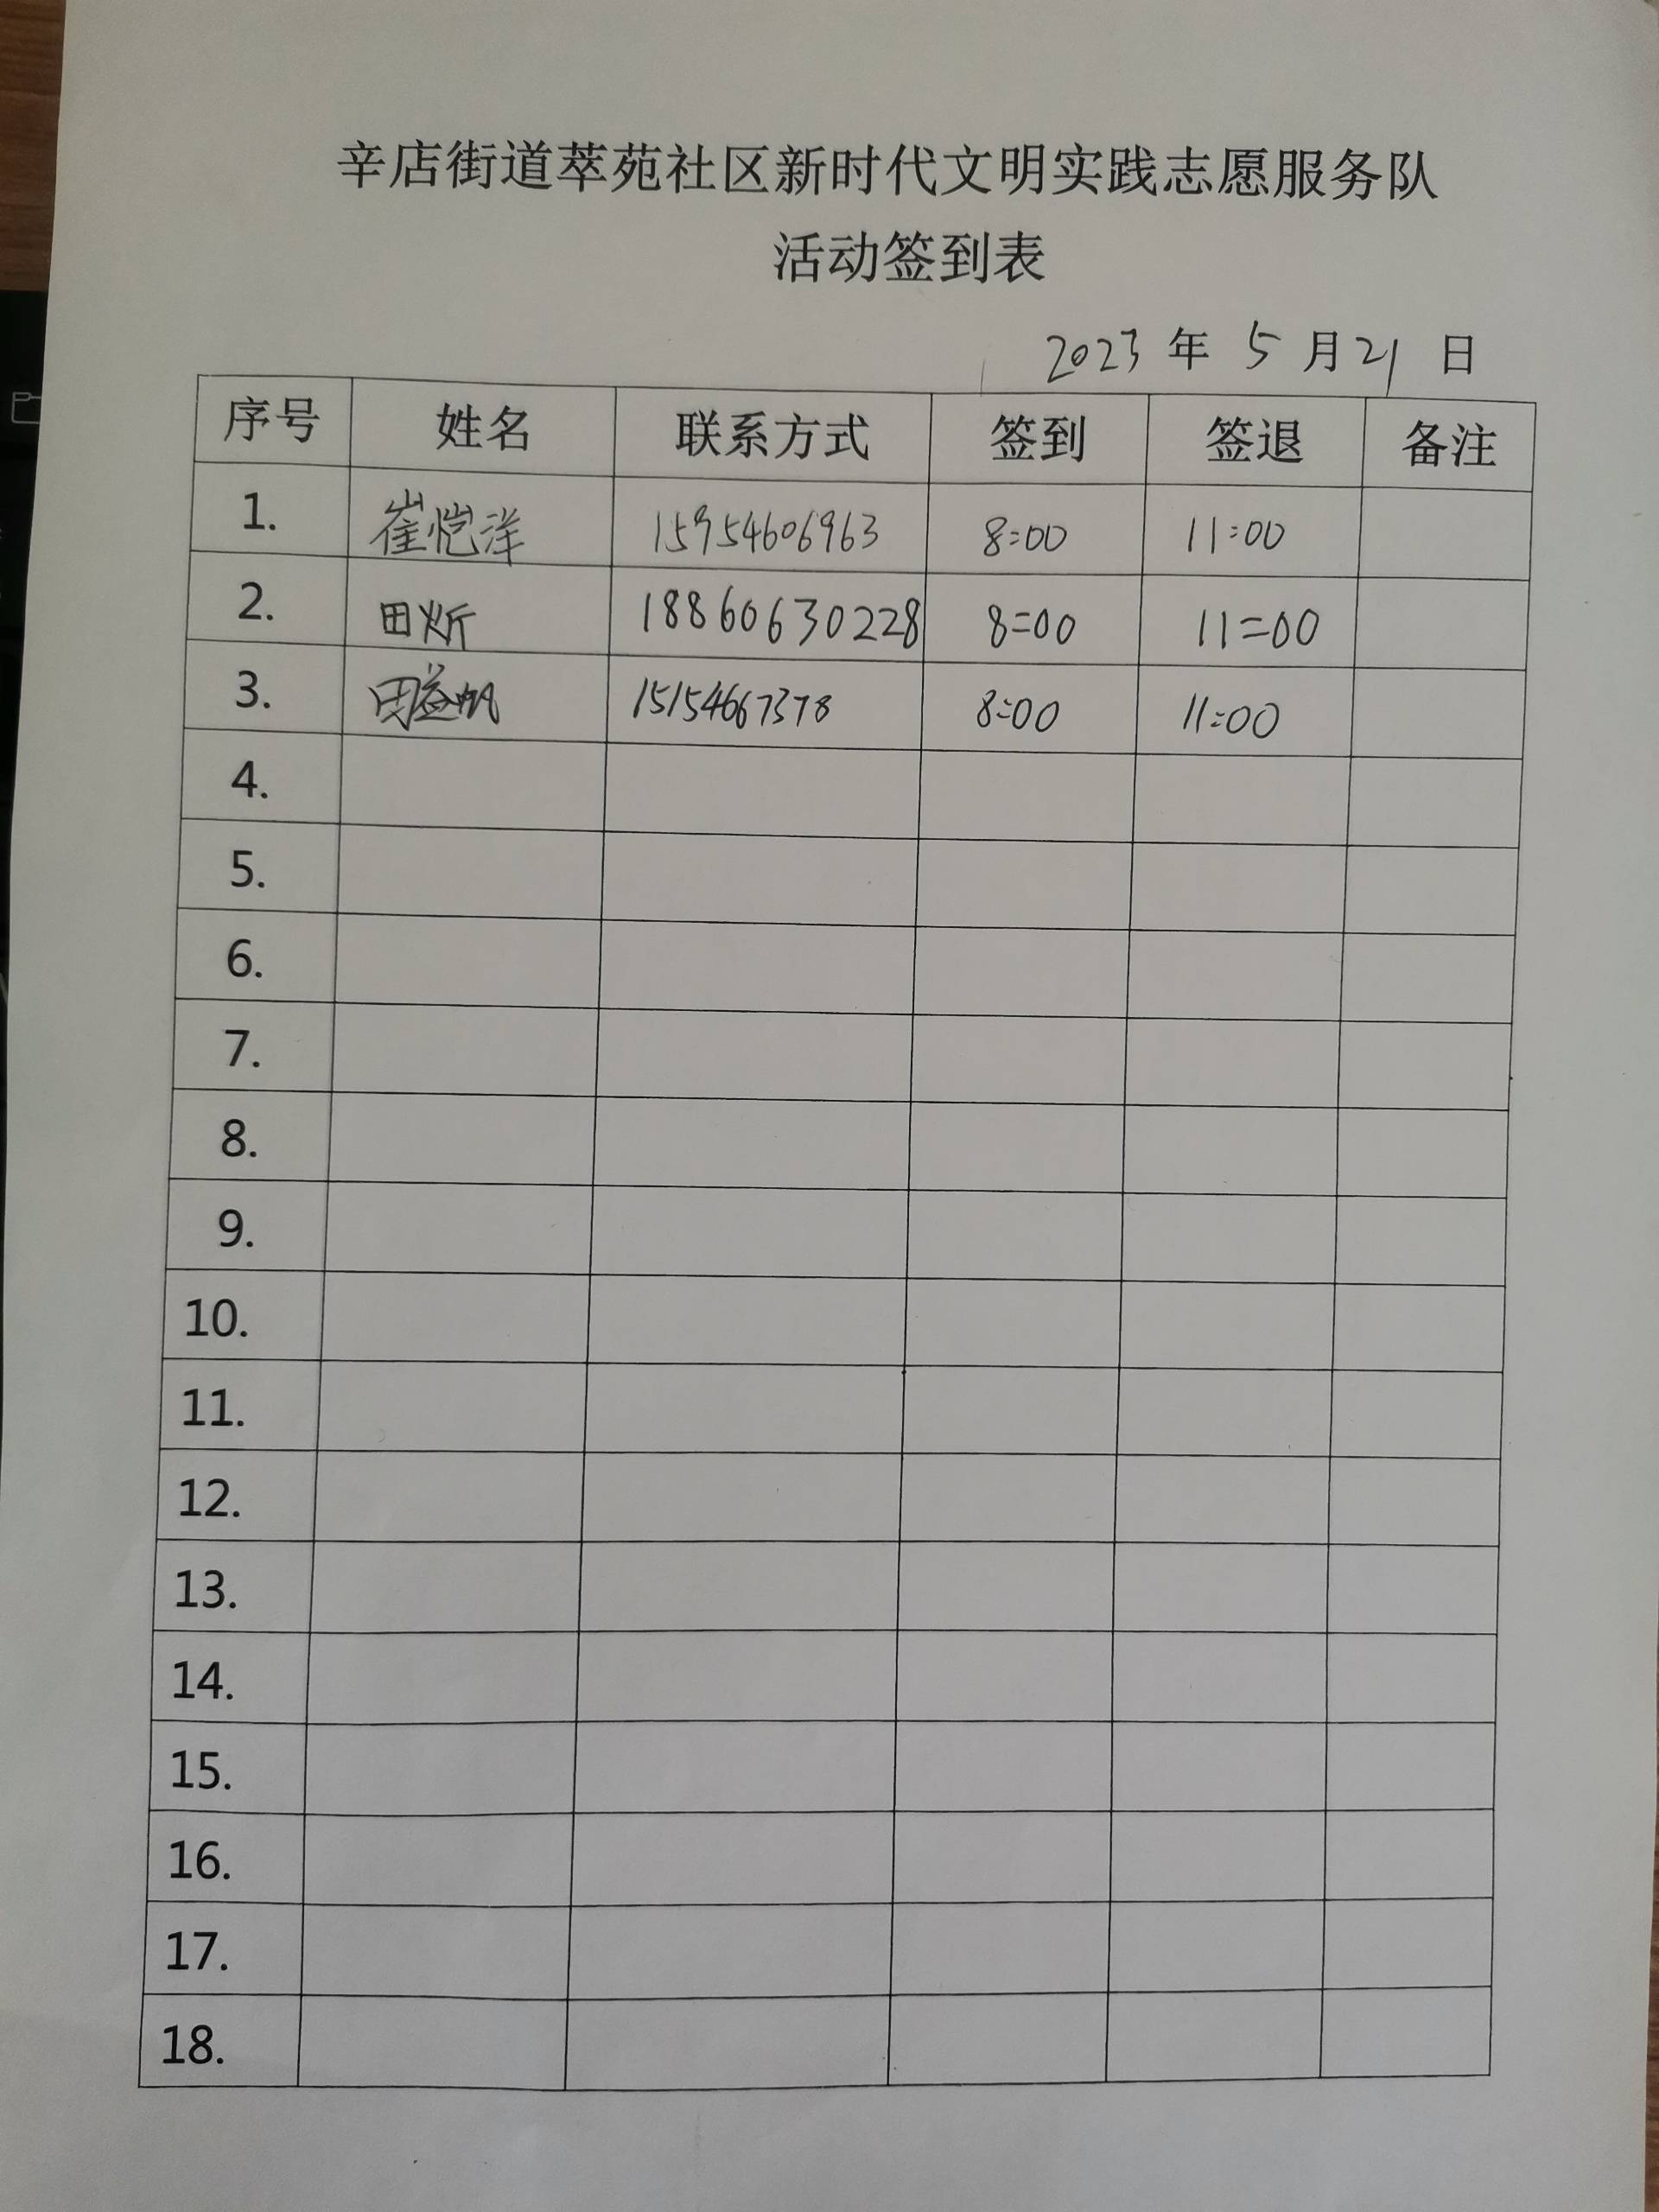 辛店街道萃苑社区新时代文明实践志愿服务队
活动签到表
2023 年 5 月 21 日
序号 姓名 联系方式 签到 签退 备注
1. 崔恺洋 15954606963 8:00 11:00
2. 田炘 18860630228 8:00 11:00
3. 15154667378 8:00 11:00
4.
5.
6.
7.
8.
9.
10.
11.
12.
13.
14.
15.
16.
17.
18.